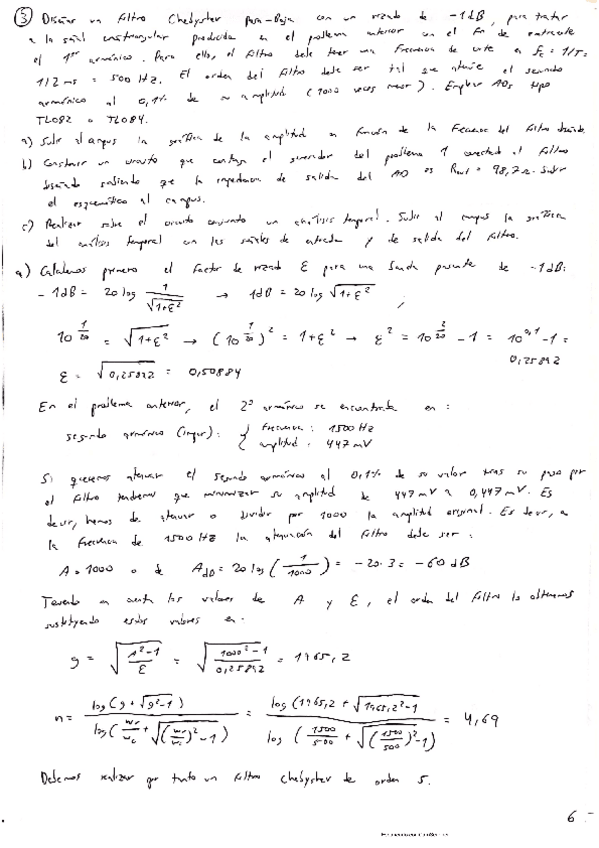 ③ Diseñar un filtro Chebyshev Paso-Baja con un rizado de -1dB, para tratar
a la señal cuadrangular producida en el problema anterior con el fin de extraerle
el 1er armónico. Para ello, el filtro debe tener una frecuencia de corte en fc = 1/T =
1/2ms = 500 Hz. El orden del filtro debe ser tal que atenúe el segundo
armónico al 0,1% de su amplitud (1000 veces menor). Emplear AOs tipo
TL082 o TL084.
a) Subir al campus la gráfica de la amplitud en función de la frecuencia del filtro diseñado.
b) Construir un circuito que contenga el generador del problema 1 conectado al filtro
diseñado sabiendo que la impedancia de salida del AO es Rout = 98,7 Ω. Subir
el esquemático al campus.
c) Realizar sobre el circuito conjunto un análisis temporal. Subir al campus la gráfica
del análisis temporal con las señales de entrada y de salida del filtro.
a) Calculamos primero el factor de rizado ε para una banda pasante de -1dB:
-1dB = 20 log 1/√(1+ε²) → 1dB = 20 log √(1+ε²)
10^(1/20) = √(1+ε²) → (10^(1/20))² = 1+ε² → ε² = 10^(2/20) - 1 = 10^0,1 - 1 =
0,25892
ε = √0,25892 = 0,50884
En el problema anterior, el 2º armónico se encontraba en:
segundo armónico (impar): { frecuencia: 1500 Hz
amplitud: 447 mV
Si queremos atenuar el segundo armónico al 0,1% de su valor tras su paso por
el filtro tendremos que minimizar su amplitud de 447 mV a 0,447 mV. Es
decir, hemos de atenuar o dividir por 1000 la amplitud original. Es decir, a
la frecuencia de 1500 Hz la atenuación del filtro debe ser:
A = 1000 o de AdB = 20 log (1/1000) = -20·3 = -60 dB
Teniendo en cuenta los valores de A y ε, el orden del filtro lo obtenemos
sustituyendo estos valores en:
g = √((A²-1)/ε) = √((1000²-1)/0,25892) = 1965,2
n = log(g + √(g²-1)) / log(wr/wc + √((wr/wc)²-1)) = log(1965,2 + √(1965,2²-1)) / log(1500/500 + √((1500/500)²-1)) = 4,69
Debemos realizar por tanto un filtro Chebyshev de orden 5.
6